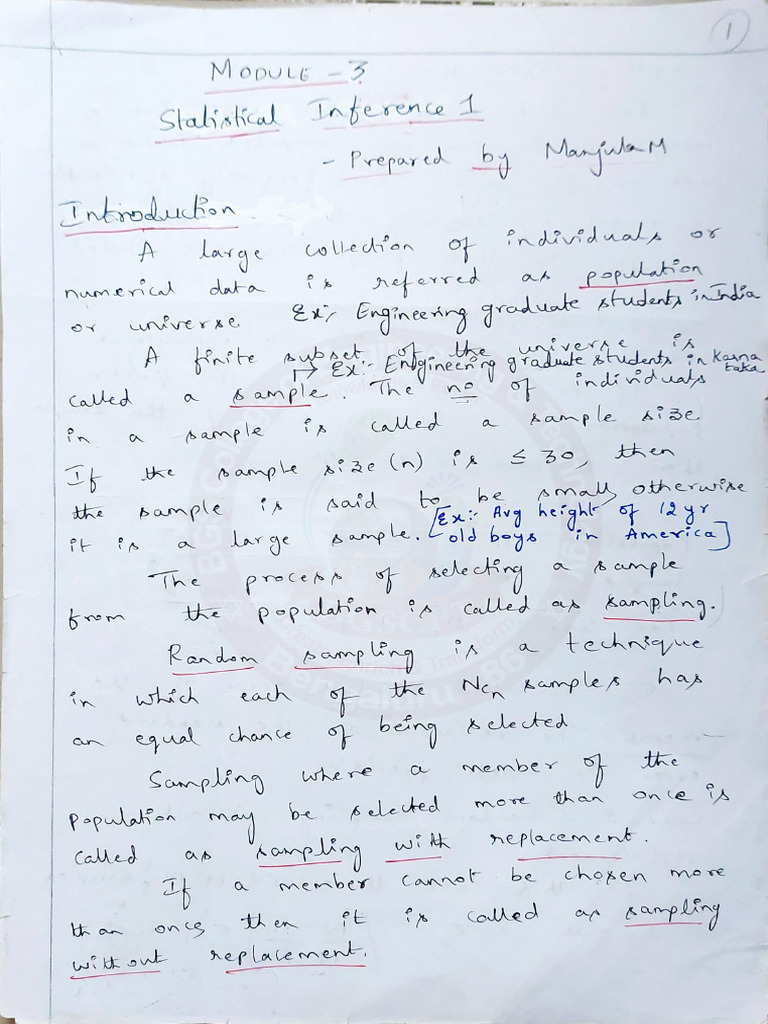 1
MODULE - 3
Statistical Inference 1
- Prepared by Manjula M
Introduction
A large collection of individuals or
numerical data is referred as population
or universe Ex:- Engineering graduate students in India
A finite subset of the universe is
↳ Ex:- Engineering graduate students in Karnataka
called a sample. The no of individuals
in a sample is called a sample size
If the sample size (n) is ≤ 30, then
the sample is said to be small, otherwise
it is a large sample. [Ex:- Avg height of 12 yr
old boys in America]
The process of selecting a sample
from the population is called as sampling.
Random sampling is a technique
in which each of the NCn samples has
an equal chance of being selected
Sampling where a member of the
population may be selected more than once is
called as sampling with replacement.
If a member cannot be chosen more
than once, then it is called as sampling
without replacement.